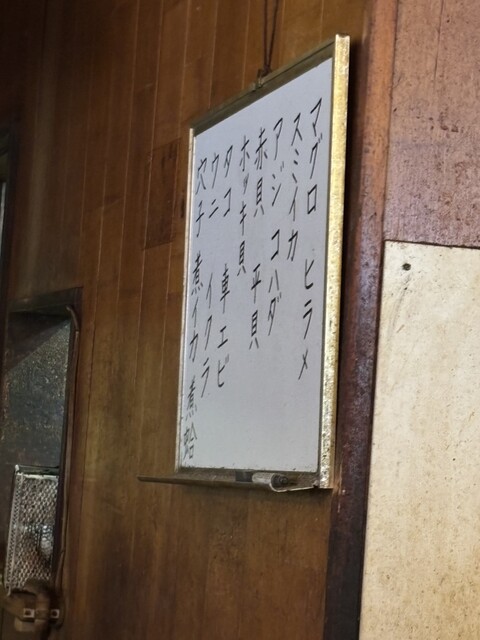 マグロ ヒラメ
スミイカ
アジ コハダ
赤貝 平貝
ホッキ貝
タコ 車エビ
ウニ イクラ
穴子 煮イカ 煮蛤